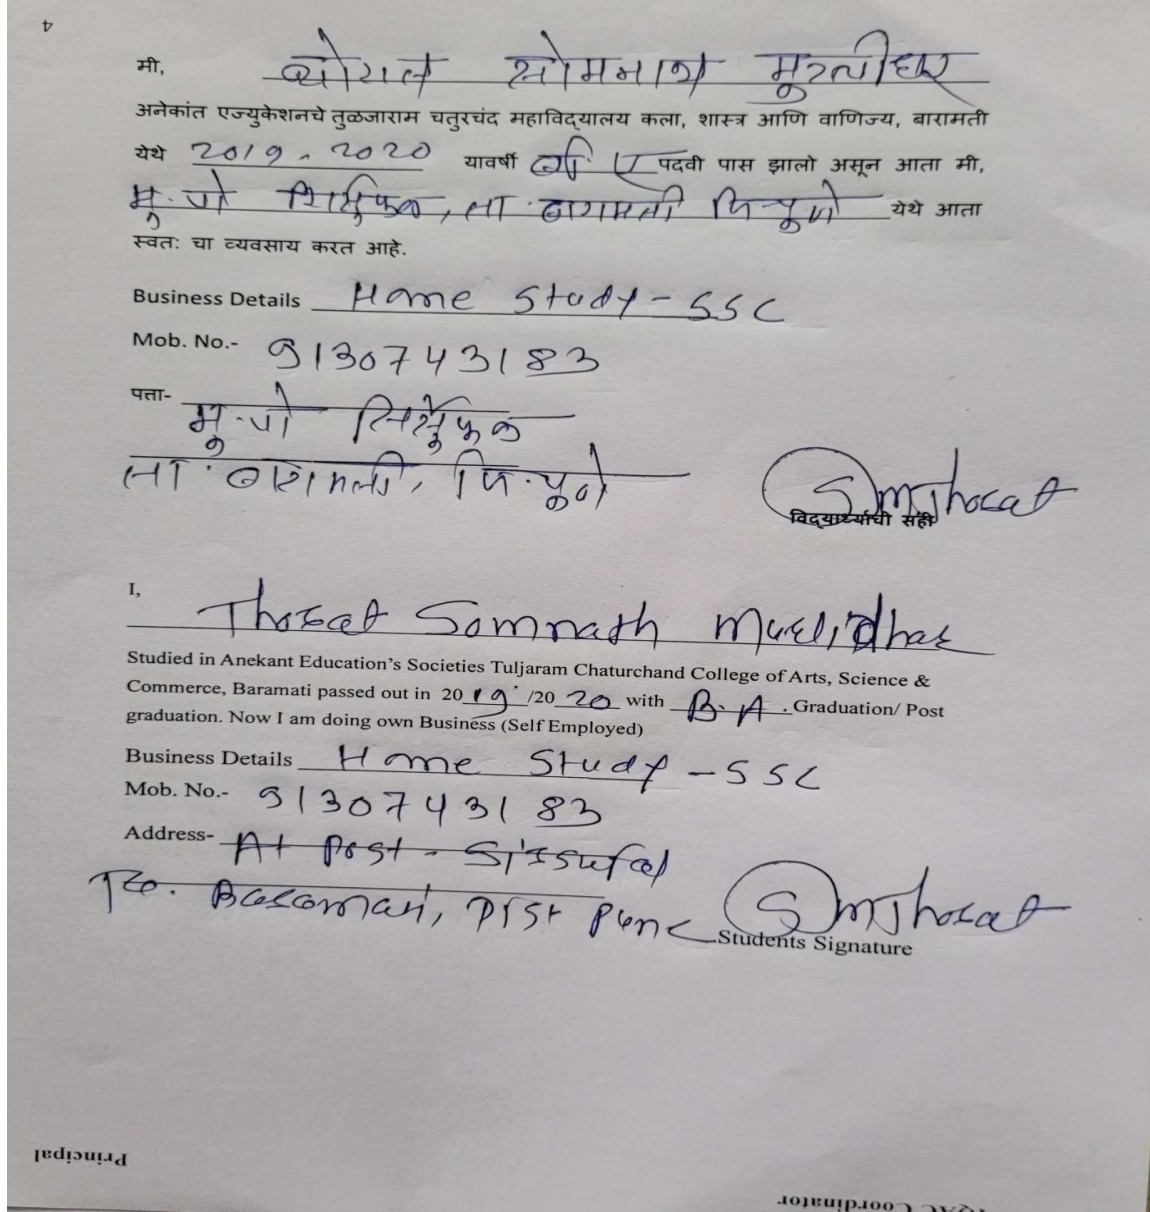 4
मी, थोरात सोमनाथ मुरलीधर
अनेकांत एज्युकेशनचे तुळजाराम चतुरचंद महाविद्यालय कला, शास्त्र आणि वाणिज्य, बारामती
येथे 2019-2020 यावर्षी बी ए पदवी पास झालो असून आता मी,
मु.पो शिर्सुफळ, ता.बारामती जि.पूणे येथे आता
स्वतः चा व्यवसाय करत आहे.
Business Details Home Study-SSC
Mob. No.- 9130743183
पत्ता- मु.पो शिर्सुफळ
ता.बारामती, जि.पूणे
SmThorat
विद्यार्थ्याची सही
I,
Thorat Somnath Murlidhar
Studied in Anekant Education's Societies Tuljaram Chaturchand College of Arts, Science &
Commerce, Baramati passed out in 2019/2020 with B.A. Graduation/ Post
graduation. Now I am doing own Business (Self Employed)
Business Details Home Study-SSC
Mob. No.- 9130743183
Address- At Post - Sirsufal
Baramati, Dist Pune
SmThorat
Students Signature
Principal
IQAC Coordinator